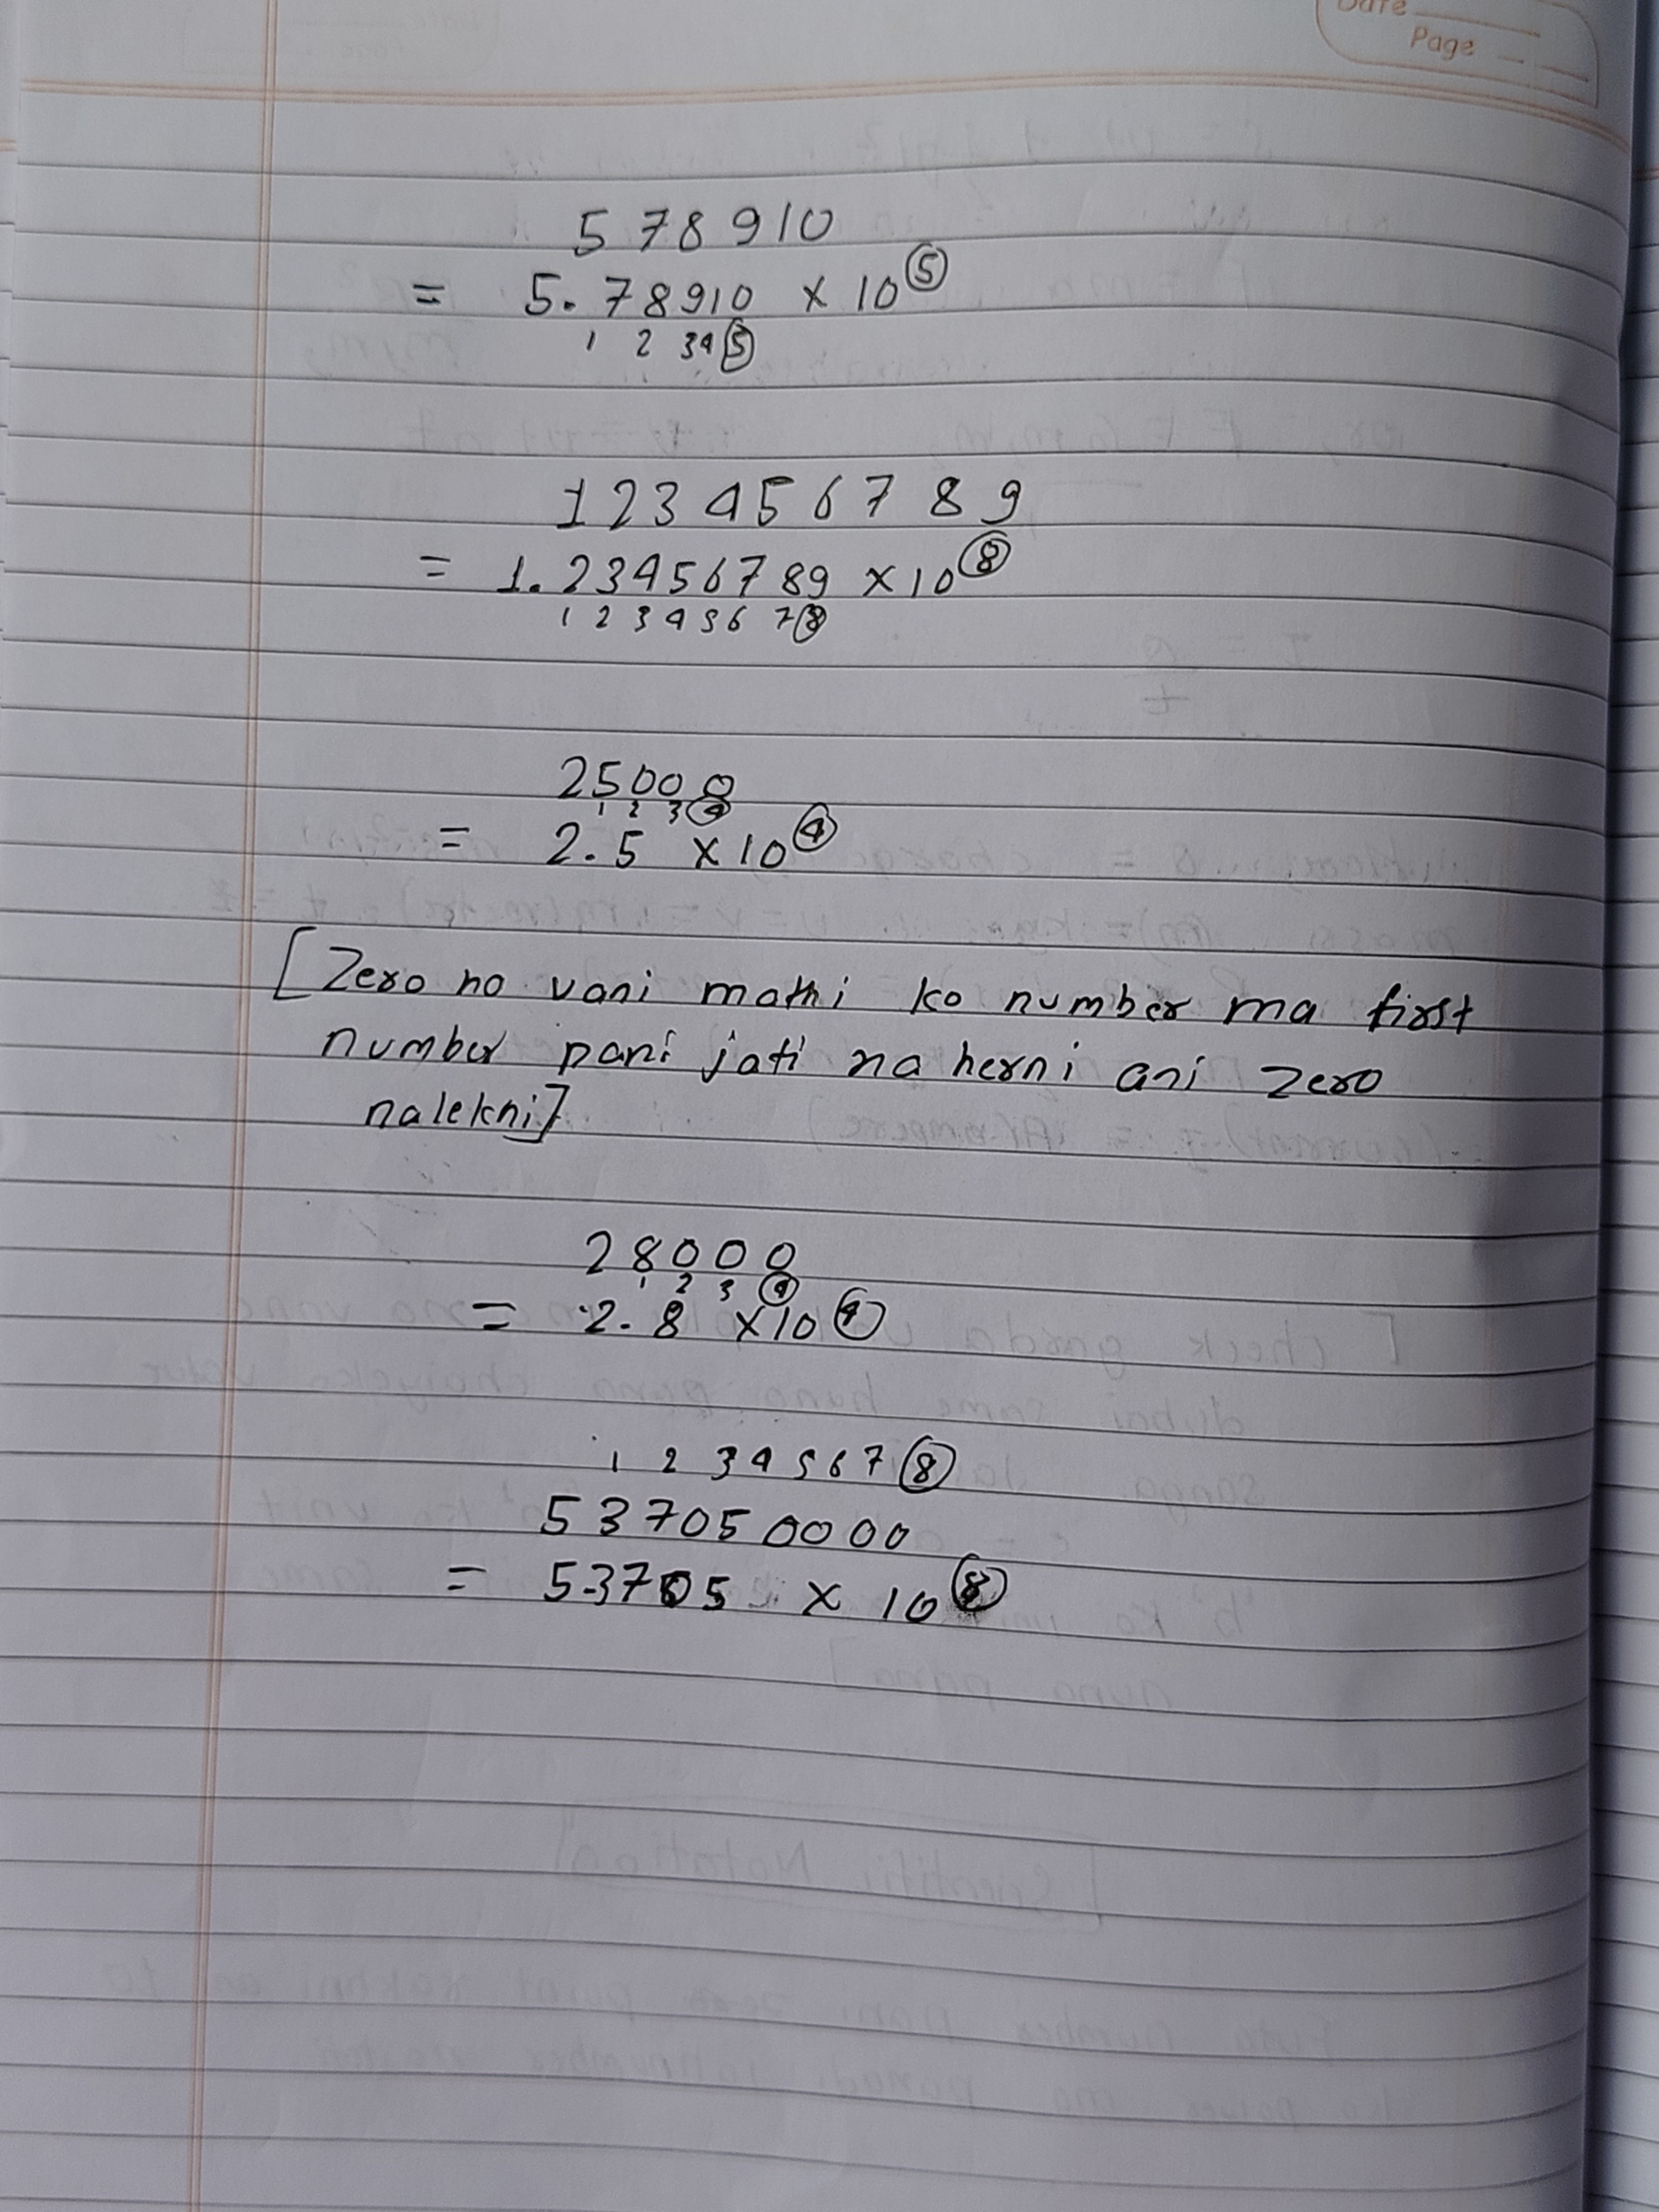 Date
Page
578910
= 5.78910 × 10⑤
1 2 3 4 ⑤
123456789
= 1.23456789 × 10⑧
1 2 3 4 5 6 7 ⑧
25000
1 2 3 ④
= 2.5 × 10④
[Zero no vani mathi ko number ma first
number pani jati na herni ani zero
nalekni]
28000
1 2 3 ④
= 2.8 × 10④
1 2 3 4 5 6 7 ⑧
537050000
= 5.3705 × 10⑧